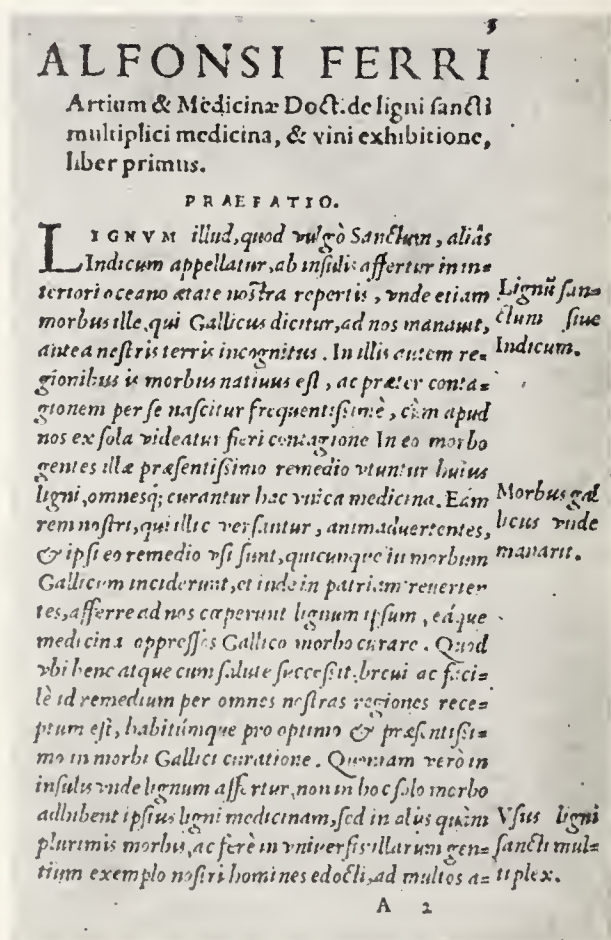 3
ALFONSI FERRI
Artium & Medicinæ Doct. de ligni sancti
multiplici medicina, & vini exhibitione,
liber primus.
PRAEFATIO.
LIGNVM illud, quod vulgò Sanctum, aliâs
Indicum appellatur, ab insulis affertur in in=
teriori oceano ætate nostra repertis, vnde etiam
morbus ille, qui Gallicus dicitur, ad nos manauit,
antea nostris terris incognitus. In illis autem re=
gionibus is morbus natiuus est, ac præter conta=
gionem per se nascitur frequentissimè, cùm apud
nos ex sola videatur fieri contagione In eo morbo
gentes illæ præsentissimo remedio vtuntur huius
ligni, omnesq; curantur hac vnica medicina. Eam
rem nostri, qui illic versantur, animaduertentes,
& ipsi eo remedio vsi sunt, quicunque in morbum
Gallicum inciderunt, et inde in patriam reuerten
tes, afferre ad nos cœperunt lignum ipsum, eáque
medicina oppressos Gallico morbo curare. Quod
vbi bene atque cum salute successit, breui ac faci=
lè id remedium per omnes nostras regiones rece=
ptum est, habitúmque pro optimo & præsentissi=
mo in morbi Gallici curatione. Quoniam verò in
insulis vnde lignum affertur, non in hoc solo morbo
adhibent ipsius ligni medicinam, sed in alijs quàm
plurimis morbis, ac ferè in vniversis illarum gen=
tium exemplo nostri homines edocti, ad multos a=
A 2
Lignũ san=
ctum siue
Indicum.
Morbus gal
licus vnde
manarit.
Vsus ligni
sancti mul=
tiplex.